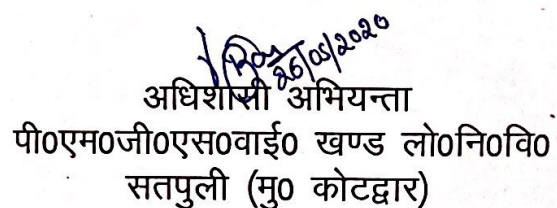 26/05/2020
अधिशासी अभियन्ता
पी०एम०जी०एस०वाई० खण्ड लो०नि०वि०
सतपुली (मु० कोटद्वार)